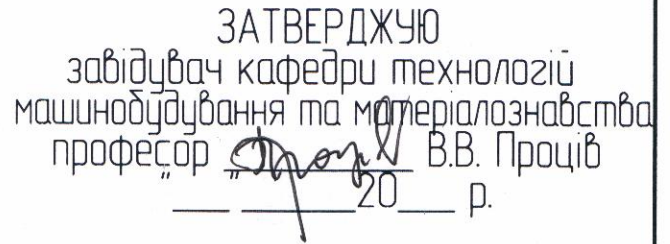 ЗАТВЕРДЖУЮ
завідувач кафедри технологій
машинобудування та матеріалознавства
професор ________ В.В. Проців
"___"________20___ р.